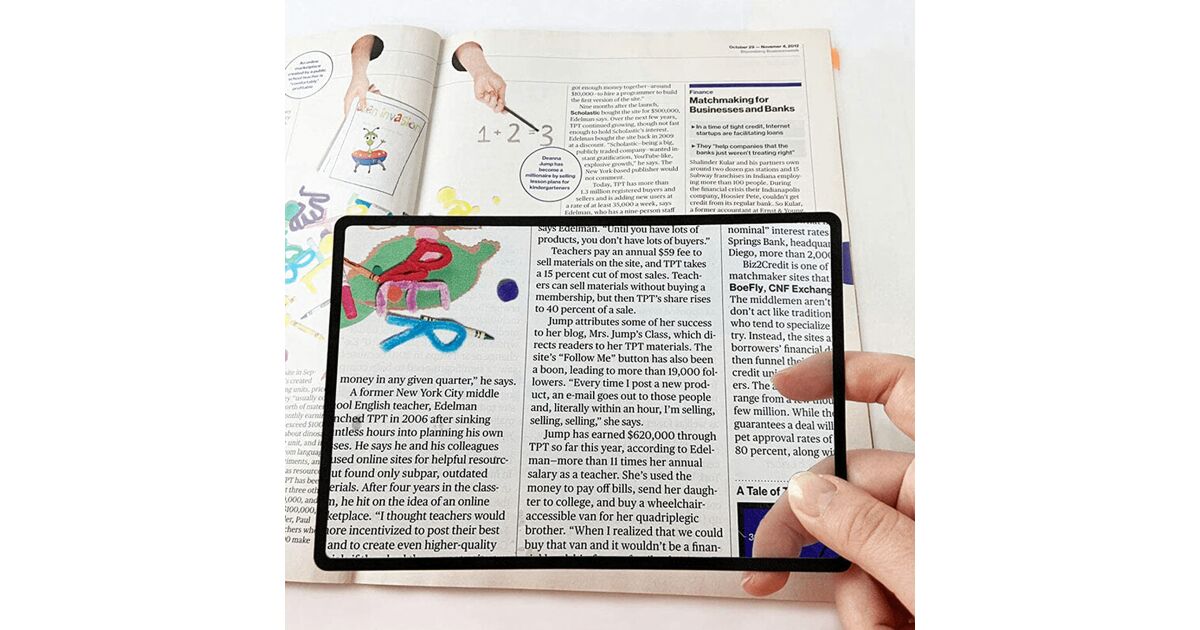 October 29 — November 4, 2012
Bloomberg Businessweek
An online
marketplace
created by a public
school teacher is
"comfortably"
profitable
alien invasion
1 + 2 = 3
Deanna
Jump has
become a
millionaire by selling
lesson plans for
kindergarteners
got enough money together—around
$10,000—to hire a programmer to build
the first version of the site."
Nine months after the launch,
Scholastic bought the site for $500,000,
Edelman says. Over the next few years,
TPT continued growing, though not fast
enough to hold Scholastic's interest.
Edelman bought the site back in 2009
at a discount. "Scholastic—being a big,
publicly traded company—wanted in-
stant gratification, YouTube-like,
explosive growth," he says. The
New York-based publisher would
not comment.
Today, TPT has more than
1.3 million registered buyers and
sellers and is adding new users at
a rate of at least 35,000 a week, says
Edelman, who has a nine-person staff
says Edelman. "Until you have lots of
products, you don't have lots of buyers."
Teachers pay an annual $59 fee to
sell materials on the site, and TPT takes
a 15 percent cut of most sales. Teach-
ers can sell materials without buying a
membership, but then TPT's share rises
to 40 percent of a sale.
Jump attributes some of her success
to her blog, Mrs. Jump's Class, which di-
rects readers to her TPT materials. The
site's "Follow Me" button has also been
a boon, leading to more than 19,000 fol-
lowers. "Every time I post a new prod-
uct, an e-mail goes out to those people
and, literally within an hour, I'm selling,
selling, selling," she says.
Jump has earned $620,000 through
TPT so far this year, according to Edel-
man—more than 11 times her annual
salary as a teacher. She's used the
money to pay off bills, send her daugh-
ter to college, and buy a wheelchair-
accessible van for her quadriplegic
brother. "When I realized that we could
buy that van and it wouldn't be a finan-
money in any given quarter," he says.
A former New York City middle
ool English teacher, Edelman
nched TPT in 2006 after sinking
ntless hours into planning his own
ses. He says he and his colleagues
used online sites for helpful resourc-
ut found only subpar, outdated
erials. After four years in the class-
m, he hit on the idea of an online
ketplace. "I thought teachers would
ore incentivized to post their best
and to create even higher-quality
Finance
Matchmaking for
Businesses and Banks
▸ In a time of tight credit, Internet
startups are facilitating loans
▸ They "help companies that the
banks just weren't treating right"
Shalinder Kular and his partners own
around two dozen gas stations and 15
Subway franchises in Indiana employ-
ing more than 100 people. During
the financial crisis their Indianapolis
company, Hoosier Pete, couldn't get
credit from its regular bank. So Kular,
a former accountant at Ernst & Young
nominal" interest rates
Springs Bank, headquar
Diego, more than 2,000
Biz2Credit is one of
matchmaker sites that
BoeFly, CNF Exchang
The middlemen aren't
don't act like tradition
who tend to specialize
try. Instead, the sites a
borrowers' financial d
then funnel thei
credit uni
ers. The a
range from a few thou
few million. While the
guarantees a deal will
pet approval rates of
80 percent, along wi
A Tale of